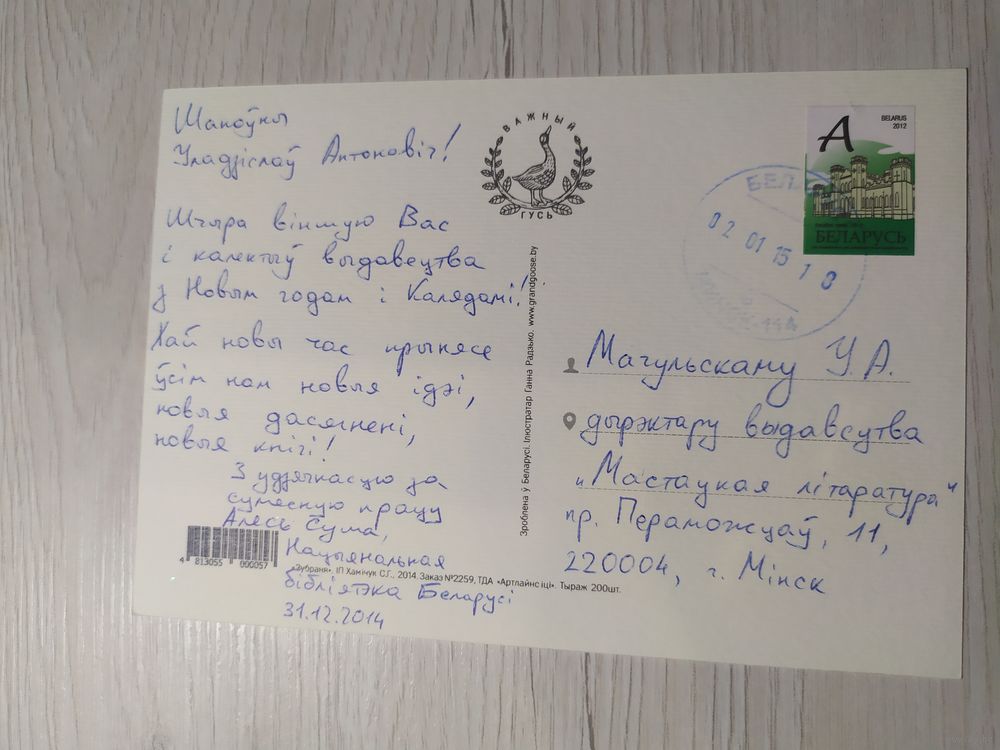 Шаноўны
Уладзіслаў Антонавіч!
Шчыра віншую Вас
і калектыў выдавецтва
з Новым годам і Калядамі!
Хай новы час прынясе
ўсім нам новыя ідэі,
новыя дасягненні,
новыя кнігі!
З удзячнасцю за
сумесную працу
Алесь Сума,
Нацыянальная
бібліятэка Беларусі
31.12.2014
4 813055 000057
«Зубраня», ІП Хамічук С.Г., 2014. Заказ №2259, ТДА «Артлайнсіці». Тыраж 200шт.
ВАЖНЫЙ
ГУСЬ
Зроблена ў Беларусі. Ілюстратар Ганна Радзько. www.grandgoose.by
A
BELARUS
2012
БЕЛАРУСЬ
БЕЛ
02 01 15 18
Мачульскаму У.А.
дырэктару выдавецтва
"Мастацкая літаратура"
пр. Пераможцаў, 11,
220004, г. Мінск